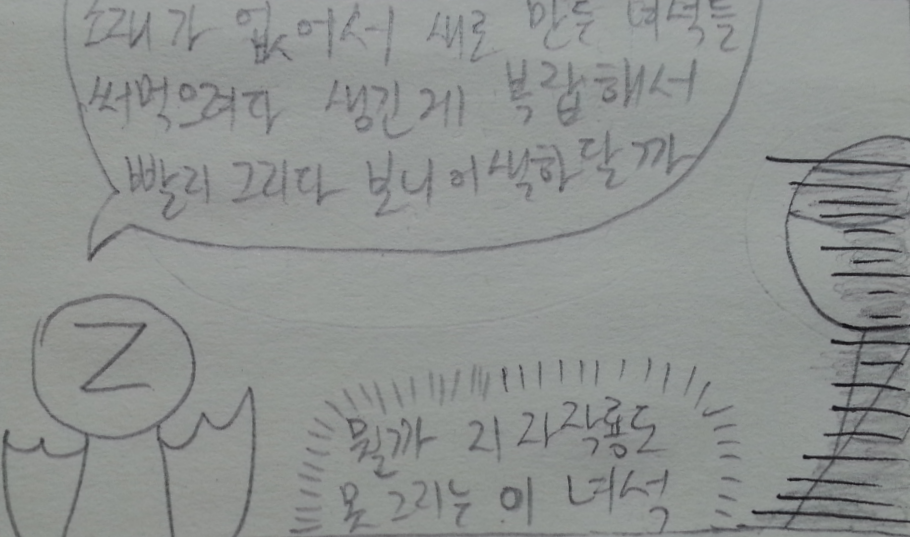 소재가 없어서 새로 만든 녀석들
써먹으려다 생긴게 복잡해서
빨리 그리다 보니 어색하달까
Z
뭘까 지 자작룡도
못그리는 이 녀석